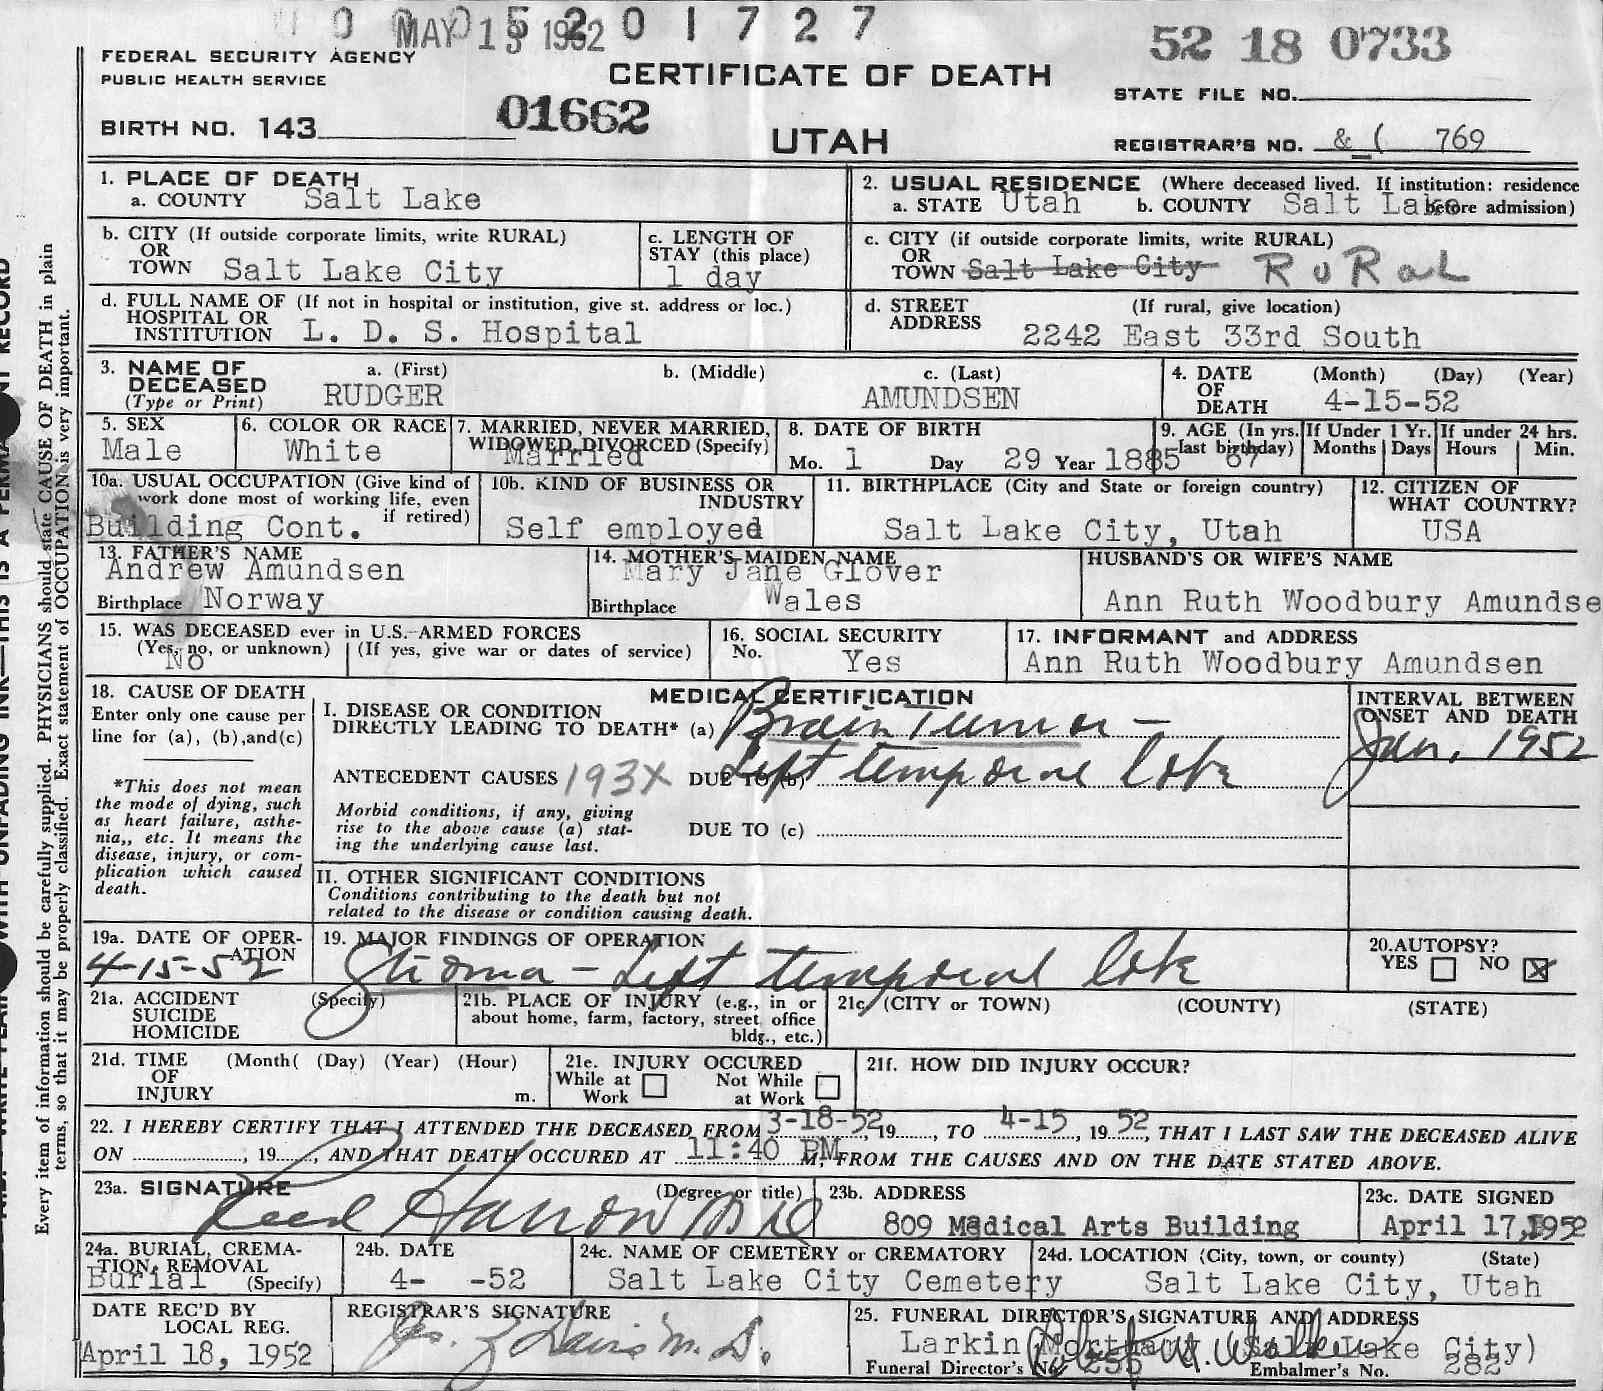 MAY 15 1952 0 1 7 2 7
52 18 0733
FEDERAL SECURITY AGENCY
PUBLIC HEALTH SERVICE
CERTIFICATE OF DEATH
STATE FILE NO.
BIRTH NO. 143
01662
UTAH
REGISTRAR'S NO. 769
1. PLACE OF DEATH
a. COUNTY Salt Lake
2. USUAL RESIDENCE (Where deceased lived. If institution: residence before admission)
a. STATE Utah b. COUNTY Salt Lake
b. CITY (If outside corporate limits, write RURAL)
OR
TOWN Salt Lake City
c. LENGTH OF
STAY (this place)
1 day
c. CITY (if outside corporate limits, write RURAL)
OR
TOWN Salt Lake City RURAL
d. FULL NAME OF (If not in hospital or institution, give st. address or loc.)
HOSPITAL OR
INSTITUTION L. D. S. Hospital
d. STREET (If rural, give location)
ADDRESS 2242 East 33rd South
3. NAME OF a. (First) b. (Middle) c. (Last)
DECEASED
(Type or Print) RUDGER AMUNDSEN
4. DATE (Month) (Day) (Year)
OF
DEATH 4-15-52
5. SEX
Male
6. COLOR OR RACE
White
7. MARRIED, NEVER MARRIED,
WIDOWED, DIVORCED (Specify)
Married
8. DATE OF BIRTH
Mo. 1 Day 29 Year 1885
9. AGE (In yrs.
last birthday) 67
If Under 1 Yr.
Months Days
If under 24 hrs.
Hours Min.
10a. USUAL OCCUPATION (Give kind of
work done most of working life, even
if retired)
Building Cont.
10b. KIND OF BUSINESS OR
INDUSTRY
Self employed
11. BIRTHPLACE (City and State or foreign country)
Salt Lake City, Utah
12. CITIZEN OF
WHAT COUNTRY?
USA
13. FATHER'S NAME
Andrew Amundsen
Birthplace Norway
14. MOTHER'S MAIDEN NAME
Mary Jane Glover
Birthplace Wales
HUSBAND'S OR WIFE'S NAME
Ann Ruth Woodbury Amundse
15. WAS DECEASED ever in U.S. ARMED FORCES
(Yes, no, or unknown) (If yes, give war or dates of service)
No
16. SOCIAL SECURITY
No. Yes
17. INFORMANT and ADDRESS
Ann Ruth Woodbury Amundsen
18. CAUSE OF DEATH
Enter only one cause per
line for (a), (b),and(c)
*This does not mean
the mode of dying, such
as heart failure, asthe-
nia,, etc. It means the
disease, injury, or com-
plication which caused
death.
MEDICAL CERTIFICATION
I. DISEASE OR CONDITION
DIRECTLY LEADING TO DEATH* (a) Brain Tumor -
ANTECEDENT CAUSES 193X DUE TO (b) Left temporal lobe
Morbid conditions, if any, giving
rise to the above cause (a) stat-
ing the underlying cause last.
DUE TO (c)
INTERVAL BETWEEN
ONSET AND DEATH
Jan, 1952
II. OTHER SIGNIFICANT CONDITIONS
Conditions contributing to the death but not
related to the disease or condition causing death.
19a. DATE OF OPER-
ATION
4-15-52
19. MAJOR FINDINGS OF OPERATION
Glioma - Left temporal lobe
20.AUTOPSY?
YES NO
21a. ACCIDENT (Specify)
SUICIDE
HOMICIDE
21b. PLACE OF INJURY (e.g., in or
about home, farm, factory, street, office
bldg., etc.)
21c. (CITY or TOWN) (COUNTY) (STATE)
21d. TIME (Month( (Day) (Year) (Hour)
OF
INJURY m.
21e. INJURY OCCURED
While at Not While
Work at Work
21f. HOW DID INJURY OCCUR?
22. I HEREBY CERTIFY THAT I ATTENDED THE DECEASED FROM 3-18-52, 19......, TO 4-15, 19 52, THAT I LAST SAW THE DECEASED ALIVE
ON ............., 19......, AND THAT DEATH OCCURED AT 11:40 PM M, FROM THE CAUSES AND ON THE DATE STATED ABOVE.
23a. SIGNATURE (Degree or title)
Reed Harrow MD
23b. ADDRESS
809 Medical Arts Building
23c. DATE SIGNED
April 17, 1952
24a. BURIAL, CREMA-
TION, REMOVAL
Burial (Specify)
24b. DATE
4- -52
24c. NAME OF CEMETERY or CREMATORY
Salt Lake City Cemetery
24d. LOCATION (City, town, or county) (State)
Salt Lake City, Utah
DATE REC'D BY
LOCAL REG.
April 18, 1952
REGISTRAR'S SIGNATURE
M. D.
25. FUNERAL DIRECTOR'S SIGNATURE AND ADDRESS
Larkin Mortuary (Salt Lake City)
Funeral Director's No. Embalmer's No. 282
Every item of information should be carefully supplied. PHYSICIANS should state CAUSE OF DEATH in plain
terms, so that it may be properly classified. Exact statement of OCCUPATION is very important.
WITH UNFADING INK—THIS IS A PERMANENT RECORD